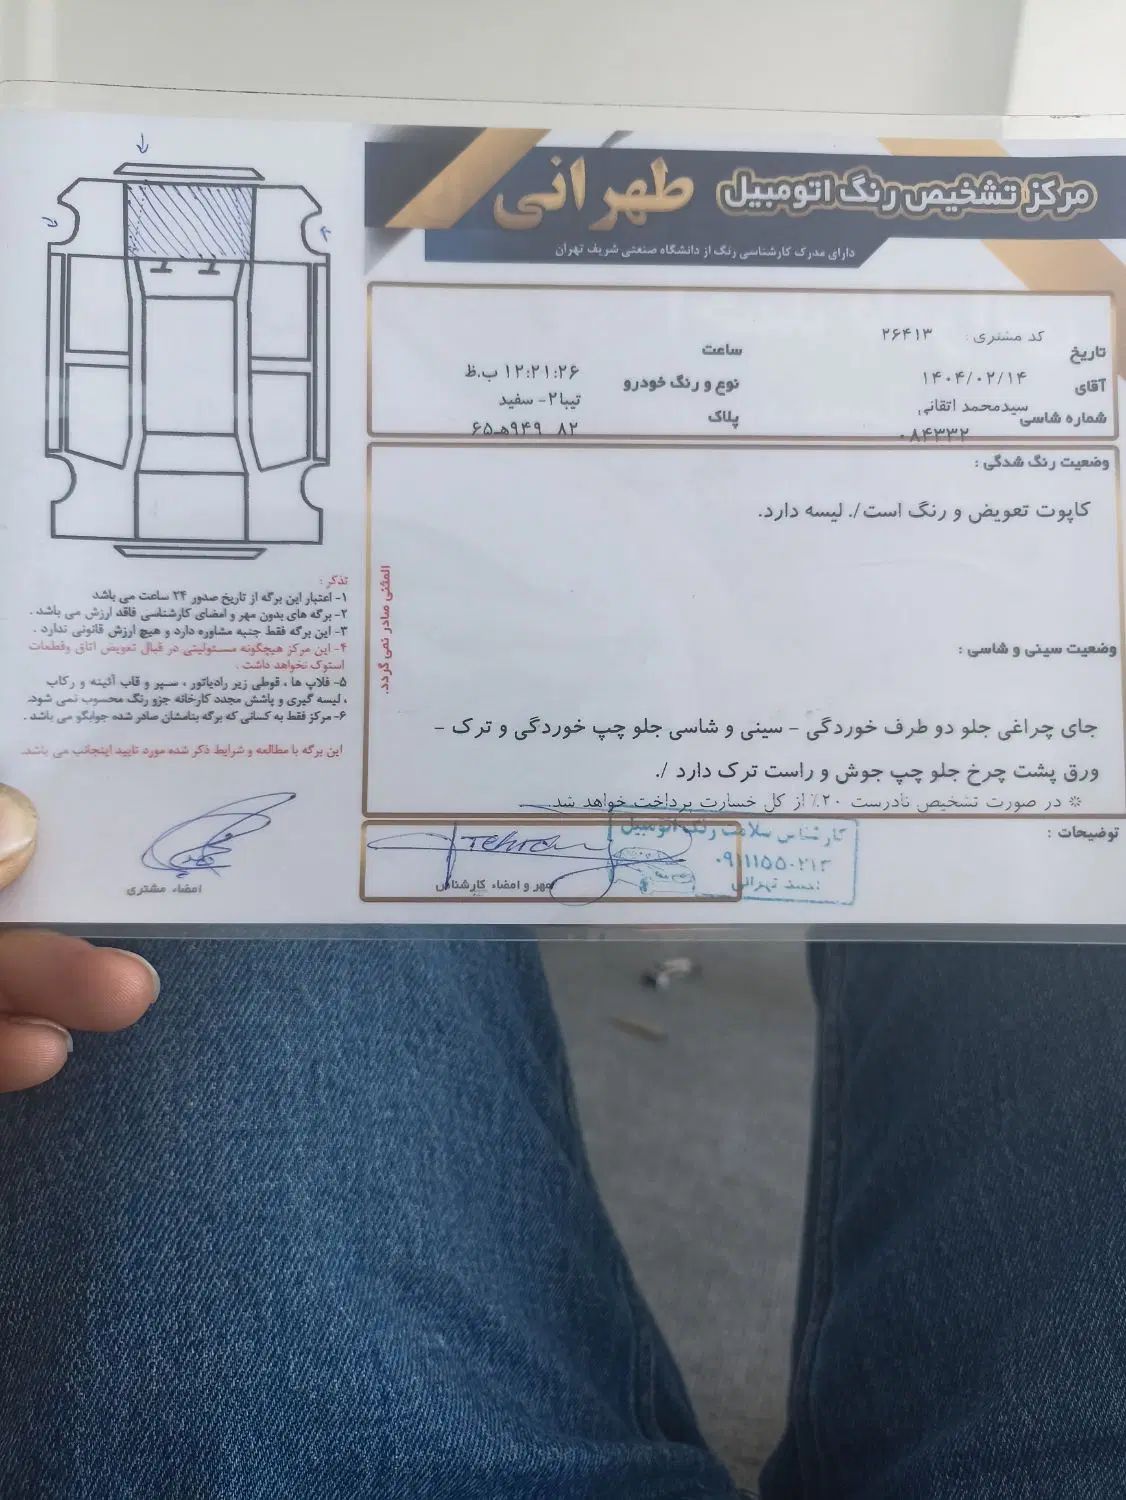 مرکز تشخیص رنگ اتومبیل طهرانی
دارای مدرک کارشناسی رنگ از دانشگاه صنعتی شریف تهران
کد مشتری : ۲۶۴۱۳
تاریخ ۱۴۰۴/۰۲/۱۴
ساعت ۱۲:۲۱:۲۶ ب.ظ
آقای سیدمحمد اتقانی
نوع و رنگ خودرو تیبا۲- سفید
شماره شاسی ۰۸۴۳۳۲
پلاک ۸۲ ۹۴۹هـ۶۵
وضعیت رنگ شدگی :
کاپوت تعویض و رنگ است/. لیسه دارد.
وضعیت سینی و شاسی :
جای چراغی جلو دو طرف خوردگی - سینی و شاسی جلو چپ خوردگی و ترک -
ورق پشت چرخ جلو چپ جوش و راست ترک دارد /.
※ در صورت تشخیص نادرست ۲۰٪ از کل خسارت پرداخت خواهد شد.
توضیحات :
المثنی صادر نمی گردد.
کارشناس سلامت رنگ اتومبیل
۰۹۱۱۱۵۵۰۲۱۳
تهرانی
Tehran
مهر و امضاء کارشناس
تذکر :
۱- اعتبار این برگه از تاریخ صدور ۲۴ ساعت می باشد
۲- برگه های بدون مهر و امضای کارشناسی فاقد ارزش می باشد .
۳- این برگه فقط جنبه مشاوره دارد و هیچ ارزش قانونی ندارد .
۴- این مرکز هیچگونه مسئولیتی در قبال تعویض اتاق وقطعات
استوک نخواهد داشت .
۵- فلاپ ها ، قوطی زیر رادیاتور ، سپر و قاب آئینه و رکاب
، لیسه گیری و پاشش مجدد کارخانه جزو رنگ محسوب نمی شود.
۶- مرکز فقط به کسانی که برگه بنامشان صادر شده جوابگو می باشد .
این برگه با مطالعه و شرایط ذکر شده مورد تایید اینجانب می باشد.
امضاء مشتری